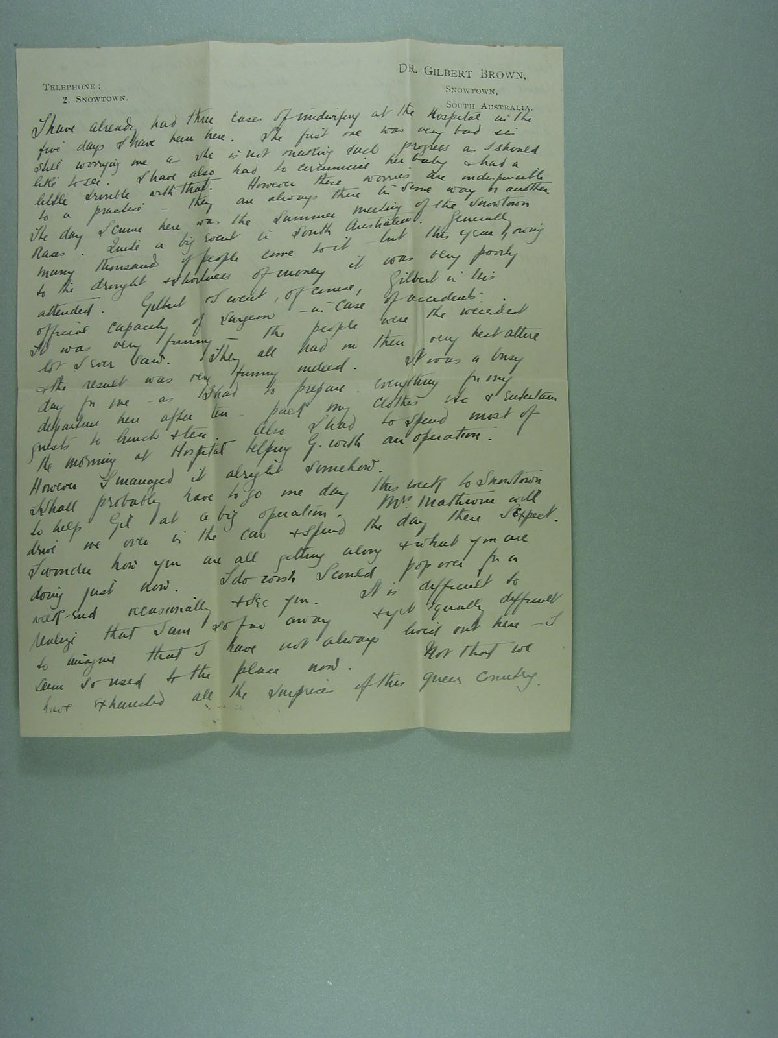 TELEPHONE:
2 SNOWTOWN.
DR. GILBERT BROWN,
SNOWTOWN,
SOUTH AUSTRALIA.
I have already had three cases of midwifery at the Hospital in the
five days I have been here. The first one was very bad &
still worrying me as she is not making such progress as I should
like to see. I have also had to circumcise her baby & had a
little trouble with that. However these worries are indispensable
to a practice they are always there in some way or another
The day I came here was the summer meeting of the Snowtown
Races. Quite a big event in South Australia. Generally
many thousands of people come to it - but this year, owing
to the drought & shortness of money it was very poorly
attended. Gilbert & I went, of course, Gilbert in his
official capacity of Surgeon - in case of accidents.
It was very funny - the people were the weirdest
lot I ever saw. They all had on their very best attire
& the result was very funny indeed. It was a busy
day for me - as I had to prepare everything for my
departure here after tea - pack my clothes etc & entertain
guests to lunch & tea. Also I had to spend most of
the morning at Hospital helping G. with an operation.
However I managed it alright somehow.
I shall probably have to go one day this week to Snowtown
to help Gil at a big operation. Mrs will
drive me over in the car & spend the day there I expect.
I wonder how you are all getting along & what you are
doing just now. I do wish I could pop over for a
week-end occasionally & see you. It is difficult to
realize that I am so far away & yet equally difficult
to imagine that I have not always lived out here - I
am so used to the place now. Not that we
have exhausted all the surprises of this queer country.